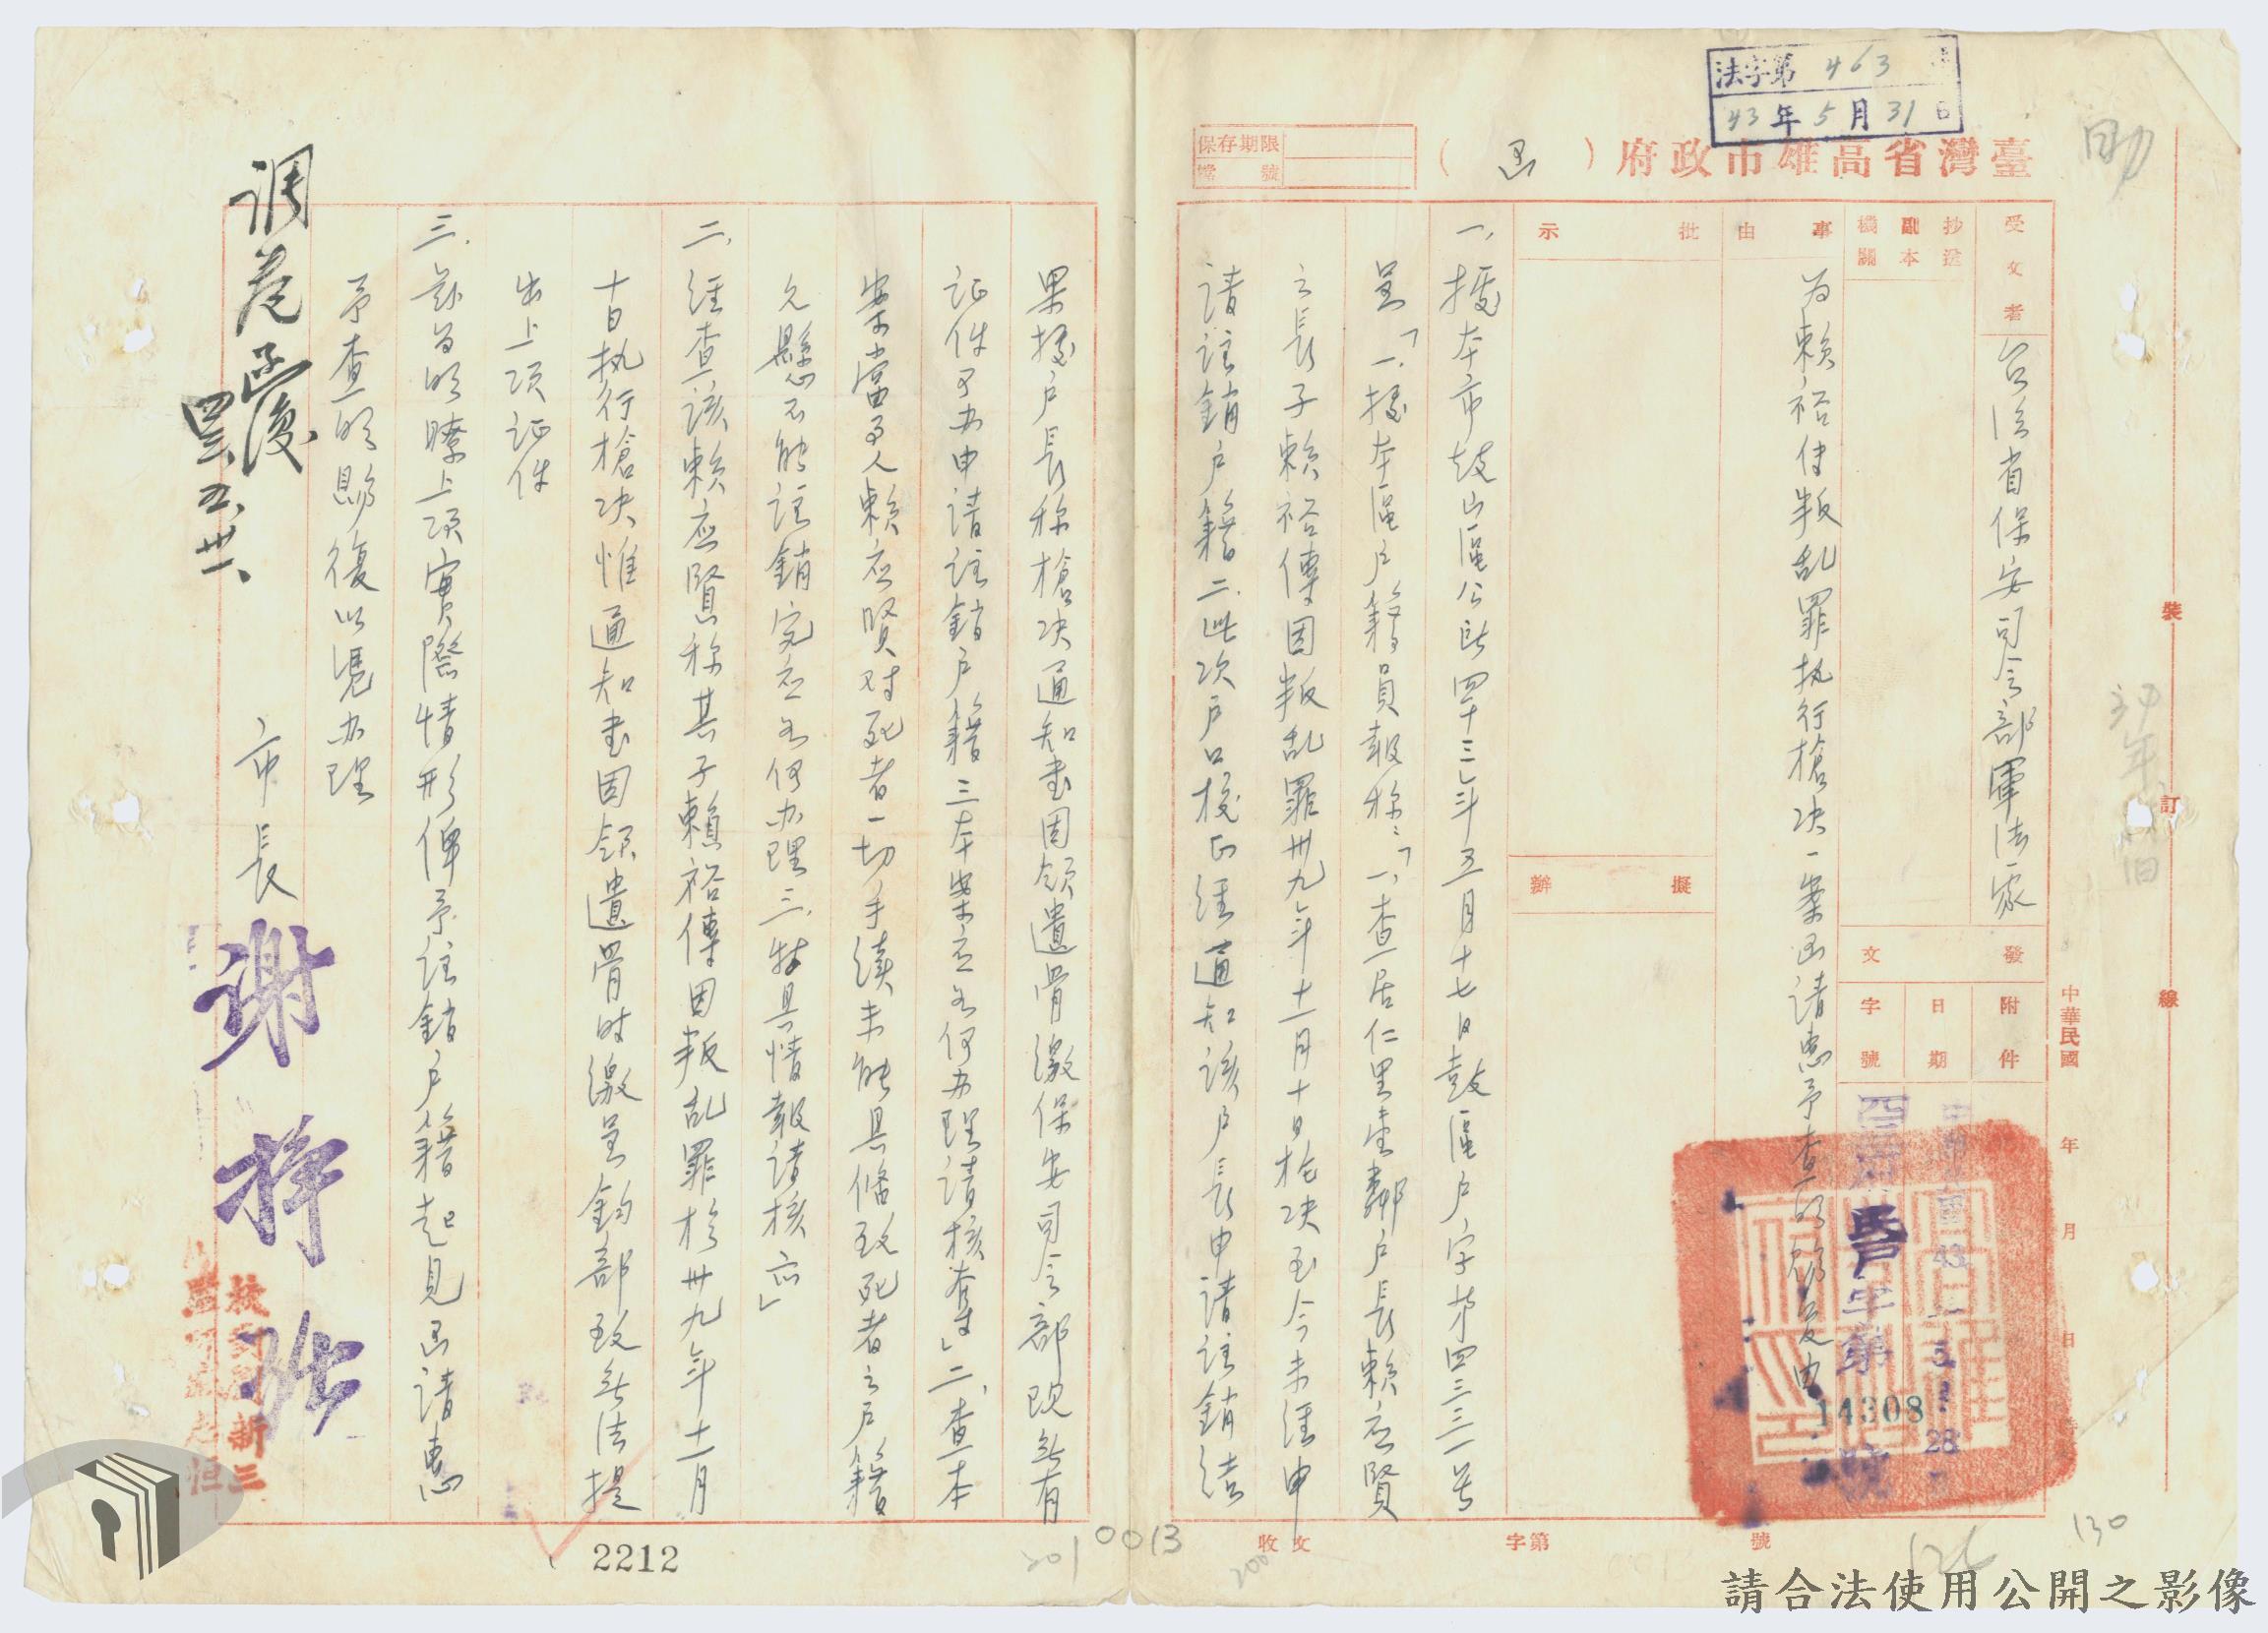 法字第463號
43年5月31日
臺灣省高雄市政府（函）
保存期限
檔號
受文者
台灣省保安司令部軍法處
抄送副本機關
事由
為賴裕傳叛乱罪执行槍决一案函請惠予查明賜复由
批示
擬辦
發文
附件
日期
字號
中華民國 年 月 日
中華民國43.5.28
14308
裝訂線
一、據本市鼓山區公所四十三年五月十七日鼓區戶字第四三三一号
呈「一、據本區戶籍員報称：「一、查居仁里 鄰戶長賴应賢
之長子賴裕傳因叛乱罪卅九年十一月十日槍决至今未經申
請註銷戶籍二、此次戶口校正經通知該戶長申請註銷結
果據戶長称槍决通知書因領遺骨繳保安司令部現無有
証件可为申請註銷戶籍三本案应如何办理請核奪」二、查本
案當事人賴应賢对死者一切手續未能具俻致死者之戶籍
久懸不能註銷究应如何办理三、特具情報請核示」
二、經查該賴应賢称其子賴裕傳因叛乱罪於卅九年十一月
十日执行槍决惟通知書因領遺骨时繳呈鈞部致無法提
出上項証件
三、茲为明瞭上項實際情形俾予註銷戶籍起見函請惠
予查明賜復以憑办理
市長 謝掙強
调卷函復
五、卅一、
收文 字第 號
2212
0013
201
200
130
請合法使用公開之影像